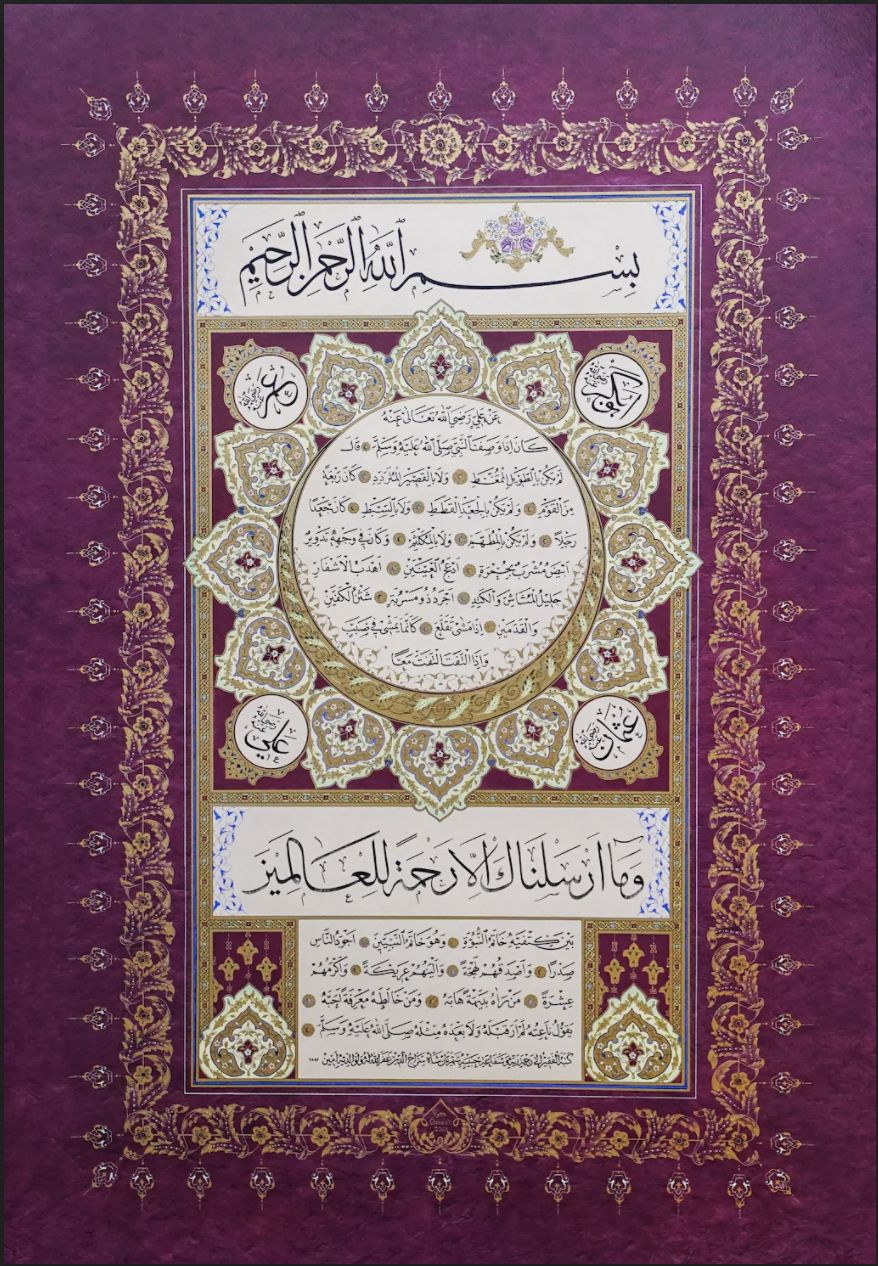 بِسْمِ اللهِ الرَّحْمنِ الرَّحِيمِ
ابوبكر رضي الله عنه
عمر رضي الله عنه
عَنْ عَلِيٍّ رَضِيَ اللهُ تَعَالَى عَنْهُ
كَانَ اِذَا وَصَفَ النَّبِيَّ صَلَّى اللهُ عَلَيْهِ وَسَلَّمَ قَالَ
لَمْ يَكُنْ بِالطَّوِيلِ الْمُمَغَّطِ وَلَا بِالْقَصِيرِ الْمُتَرَدِّدِ كَانَ رَبْعَةً
مِنَ الْقَوْمِ وَلَمْ يَكُنْ بِالْجَعْدِ الْقَطَطِ وَلَا بِالسَّبِطِ كَانَ جَعْدًا
رَجِلًا وَلَمْ يَكُنْ بِالْمُطَهَّمِ وَلَا بِالْمُكَلْثَمِ وَكَانَ فِي وَجْهِهِ تَدْوِيرٌ
اَبْيَضُ مُشْرَبٌ بِحُمْرَةٍ اَدْعَجُ الْعَيْنَيْنِ اَهْدَبُ الْاَشْفَارِ
جَلِيلُ الْمُشَاشِ وَالْكَتَدِ اَجْرَدُ ذُو مَسْرُبَةٍ شَثْنُ الْكَفَّيْنِ
وَالْقَدَمَيْنِ اِذَا مَشَى تَقَلَّعَ كَاَنَّمَا يَمْشِي فِي صَبَبٍ
وَاِذَا الْتَفَتَ الْتَفَتَ مَعًا
عثمان رضي الله عنه
علي رضي الله عنه
وَمَا اَرْسَلْنَاكَ اِلَّا رَحْمَةً لِلْعَالَمِينَ
بَيْنَ كَتِفَيْهِ خَاتَمُ النُّبُوَّةِ وَهُوَ خَاتَمُ النَّبِيِّينَ اَجْوَدُ النَّاسِ
صَدْرًا وَاَصْدَقُهُمْ لَهْجَةً وَاَلْيَنُهُمْ عَرِيكَةً وَاَكْرَمُهُمْ
عِشْرَةً مَنْ رَاٰهُ بَدِيهَةً هَابَهُ وَمَنْ خَالَطَهُ مَعْرِفَةً اَحَبَّهُ
يَقُولُ نَاعِتُهُ لَمْ اَرَ قَبْلَهُ وَلَا بَعْدَهُ مِثْلَهُ صَلَّى اللهُ عَلَيْهِ وَسَلَّمَ